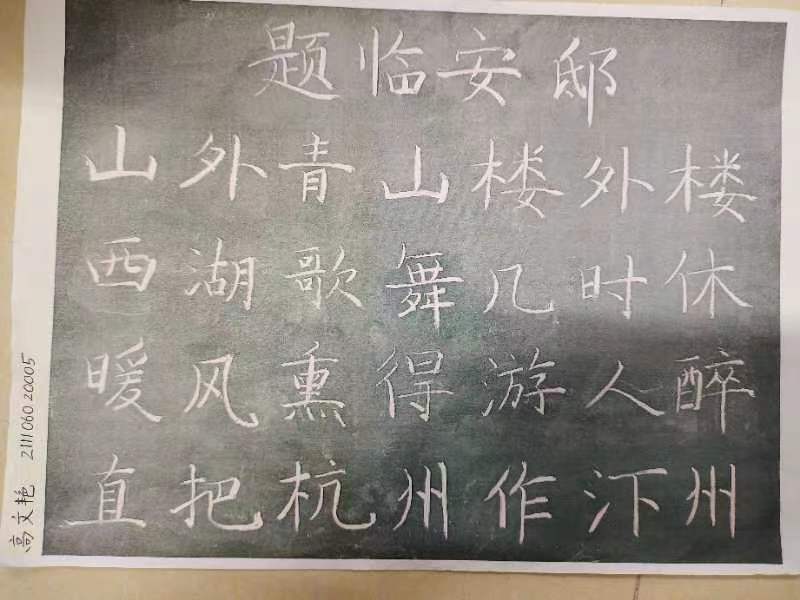 题临安邸
山外青山楼外楼
西湖歌舞几时休
暖风熏得游人醉
直把杭州作汴州
高文艳 211106020005